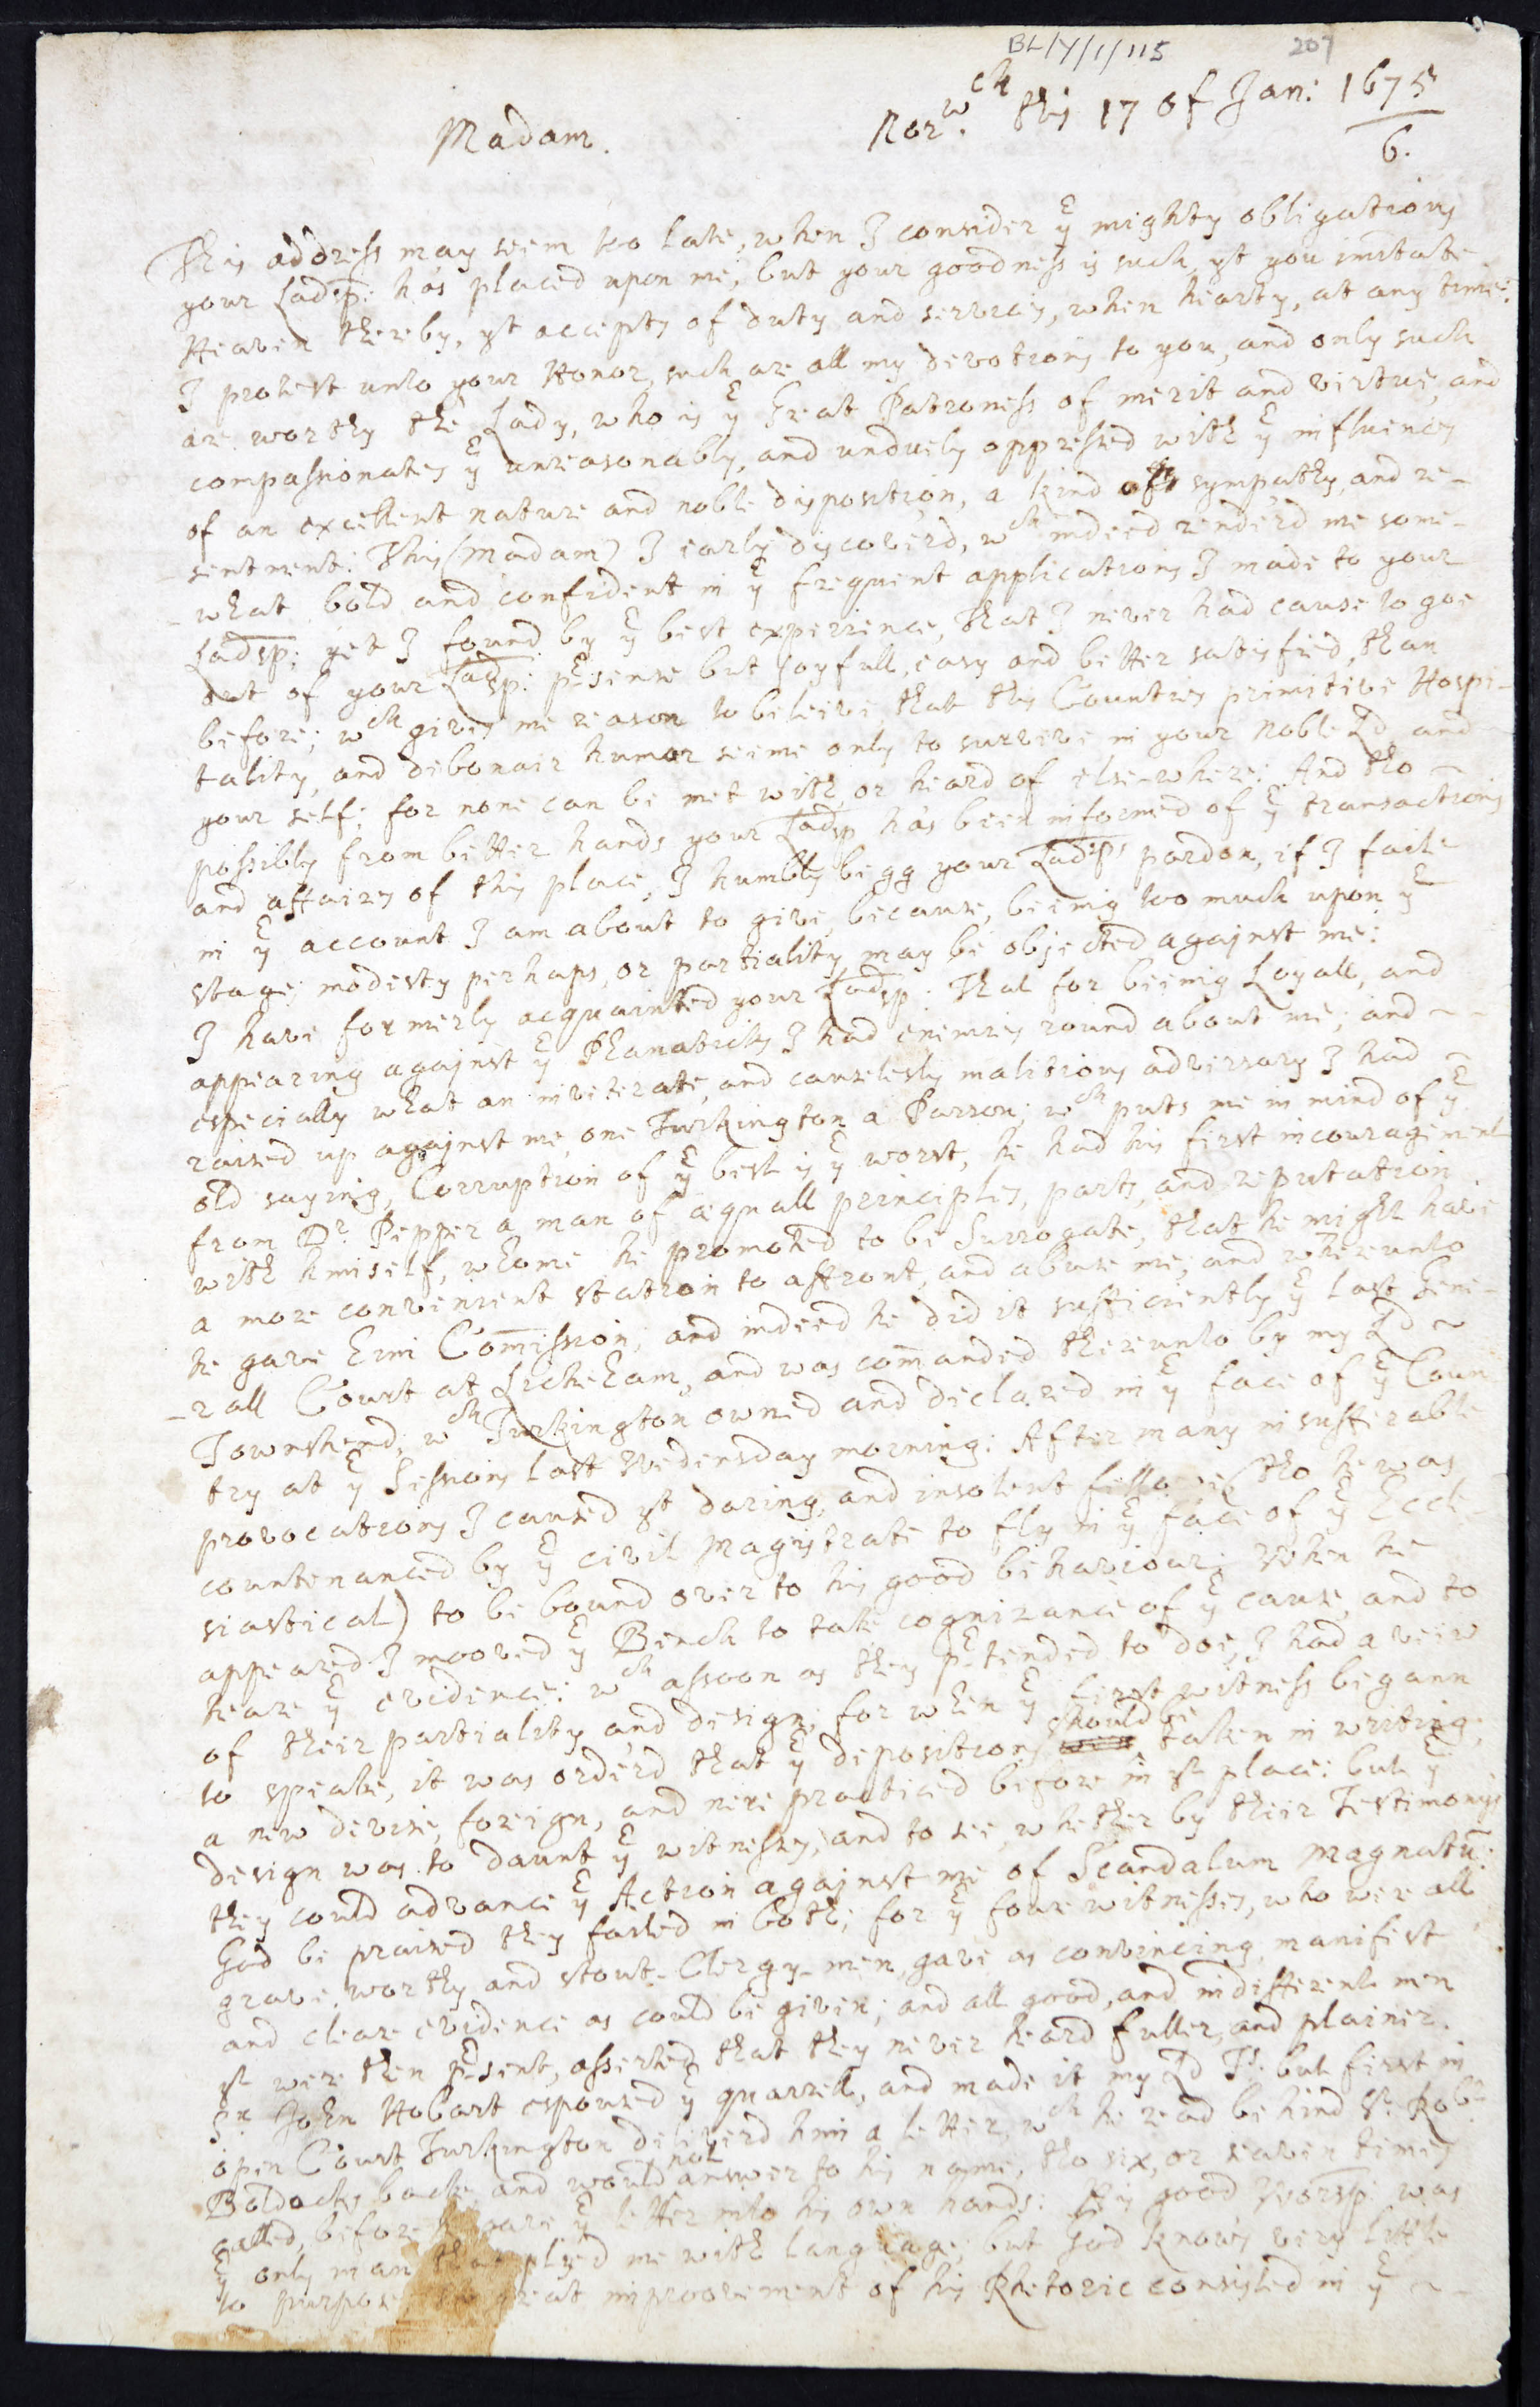 BL/Y/1/115 207
Norwch. this 17 of Jan: 1675/6.
Madam.
This address may seem too late, when I consider ye mighty obligations
your Ladsp: has placed upon me, but your goodness is such, yt you imitate
Heaven thereby, yt accepts of duty and services, when hearty, at any time:
I protest unto your Honor, such are all my devotions to you, and only such
are worthy the Lady, who is ye Great Patroness of merit and virtue, and
compassionates ye unreasonably, and unduely oppressed with ye influences
of an excellent nature and noble disposition, a kind of sympathy, and re-
-sentment: This (Madam) I early discover'd, wch indeed render'd me some-
-what bold and confident in ye frequent applications I made to your
Ladsp: yet I found by ye best experience, that I never had cause to goe
out of your Ladsp: presence but joyfull, easy and better satisfied, than
before; wch gives me reason to beleive, that this Countries primitive Hospi-
tality, and debonair humor seeme only to survive in your noble Ld and
your self; for none can be met with, or heard of else-where: And tho ~
possibly from better hands your Ladsp has been informed of ye transactions
and affaires of this place, I humbly begg your Ladsps pardon, if I faile
in ye account I am about to give, because, beeing too much upon ye
stage; modesty perhaps, or partiality may be objected against me:
I have formerly acquainted your Ladsp: That for beeing Loyall, and
appearing against ye Phanaticks I had enemies round about me; and ~ -
especially what an inveterate, and causelesly malitious adversary I had
raised up against me, one Turkington a Parson; wch puts me in mind of ye
old saying, Corruption of ye best is ye worst, he had his first incouragement
from Dr. Pepper a man of æquall principles, parts, and reputation
with himself, whome he promoted to be Surrogate, that he might have
a more convenient station to affront, and abuse me; and whereunto
he gave him Comission; and indeed he did it sufficiently ye last Gene-
-rall Court at Licheham, and was comanded thereunto by my Ld ~
Townshend; wch Turkington owned and declared in ye face of ye Coun
try at ye Sessions last Wedensday morning: After many insufferable
provocations I caused yt daring, and insolent fellowe (tho he was
countenanced by ye civil Magistrate to fly in ye face of ye Eccle-
siastical) to be bound over to his good behaviour; When he
appeared I mooved ye Bench to take cognizance of ye cause, and to
heare ye evidence: wch assoon as they pretended to doe, I had a veiw
of their partiality and design; for when ye first witness begann
to speake, it was order'd that ye depositions should be taken in writing;
a new devise, foreign, and nere practiced before in yt place: but ye
design was to daunt ye witnesses, and to see, whether by their Testimonys
they could advance ye Action against me of Scandalum Magnatū:
God be praised they failed in both; for ye foure witnesses, who were all
grave, worthy and stout Clergy-men, gave as convincing, manifest
and cleare evidence as could be given; and all good, and indifferent men
yt were then present, asserted that they never heard fuller, and plainer.
Sr. John Hobart espoused ye quarrell, and made it my Ld Ts: but first in
open Court Turkington deliverd him a letter, wch he read behind Sr. Robt
Baldocks back, and would not answer to his name, tho six, or seaven times
called, before he gave ye letter into his own hands: His good Worsp: was
ye only man that plyed me with language; but God knows very little
to purpose, the great improovement of his Rhetoric consisted in ye ~ -